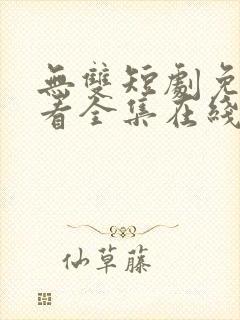 無雙短劇免
看全集在綫
仙草藤